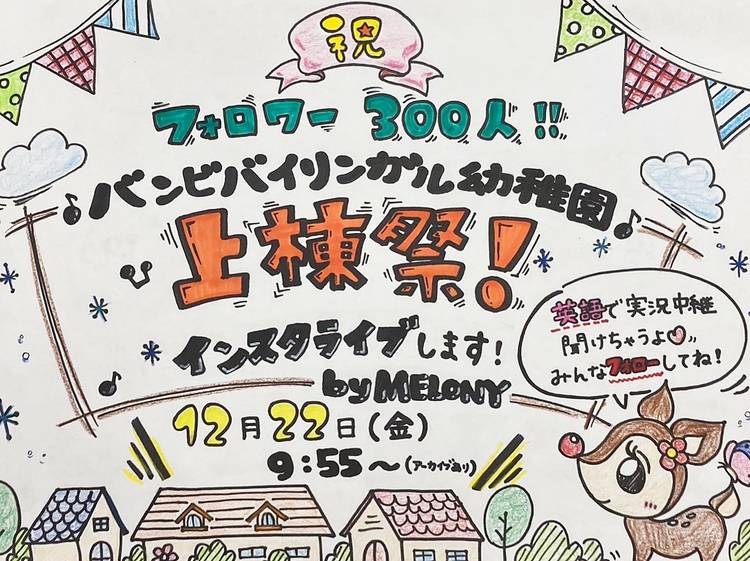 祝
フォロワー 300人!!
バンビバイリンガル幼稚園
上棟祭!
インスタライブします!
by MELONY
12月22日(金)
9:55〜(アーカイブあり)
英語で実況中継
聞けちゃうよ♡〃
みんなフォローしてね!